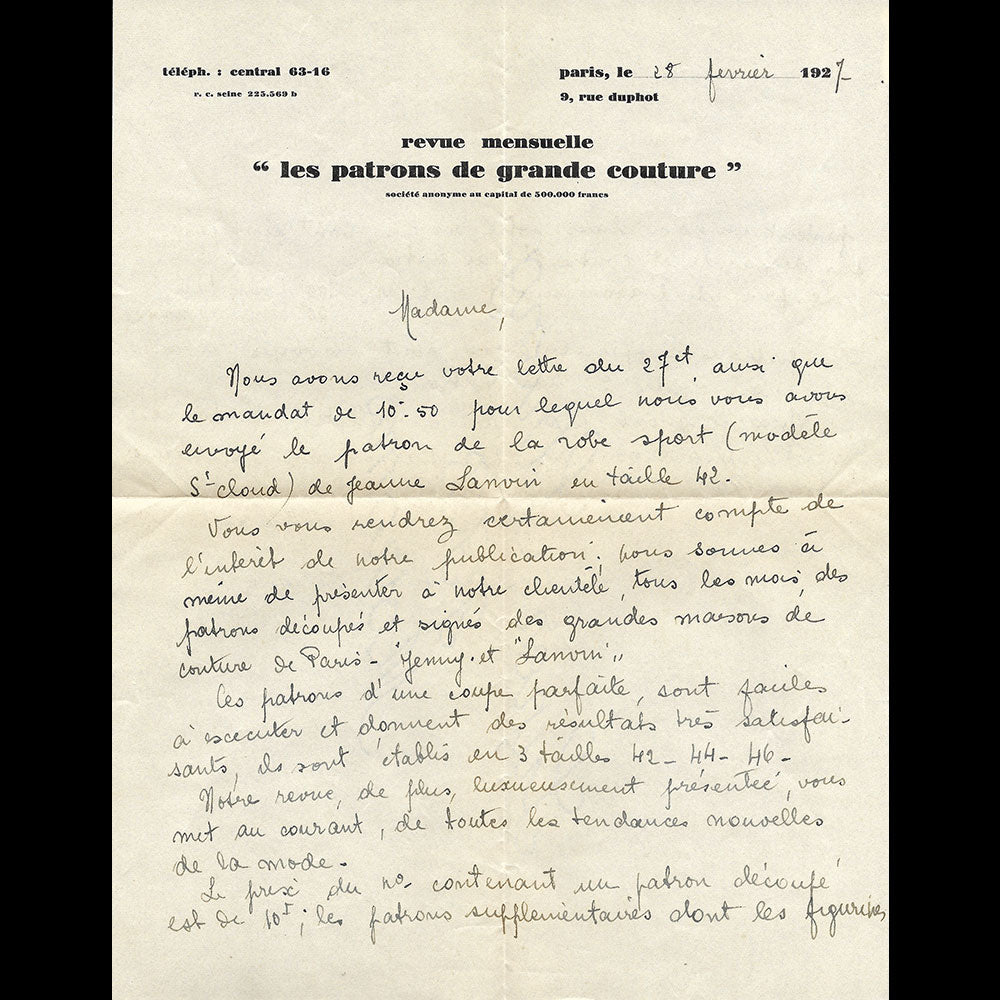 téléph. : central 63-16
r. c. seine 225.569 b
paris, le 28 fevrier 1927
9, rue duphot
revue mensuelle
“ les patrons de grande couture ”
société anonyme au capital de 500.000 francs
Madame,
Nous avons reçu votre lettre du 27 ct, ainsi que
le mandat de 10f.50 pour lequel nous vous avons
envoyé le patron de la robe sport (modèle
St cloud) de Jeanne Lanvin en taille 42.
Vous vous rendrez certainement compte de
l'interêt de notre publication; nous sommes à
même de présenter à notre clientèle, tous les mois, des
patrons découpés et signés des grandes maisons de
couture de Paris - "Jenny et "Lanvin"
Ces patrons d'une coupe parfaite, sont faciles
à executer et donnent des résultats très satisfai-
sants, ils sont établis en 3 tailles 42 - 44 - 46 -
Notre revue, de plus, luxueusement présentée, vous
met au courant, de toutes les tendances nouvelles
de la mode.
Le prix du no contenant un patron découpé
est de 10f; les patrons supplémentaires dont les figurines